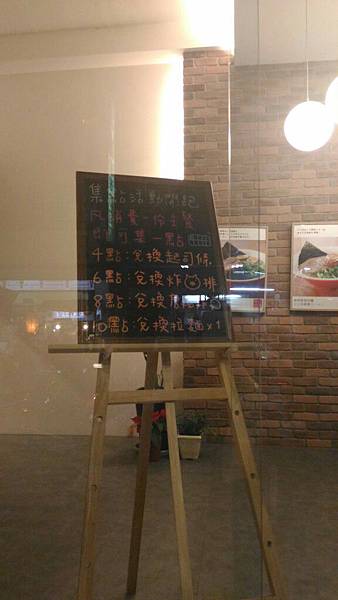 集點活動開跑
凡消費一份主餐
即可集一點
4點:兌換起司條
6點:兌換炸排
8點:兌換
10點:兌換拉麵x1